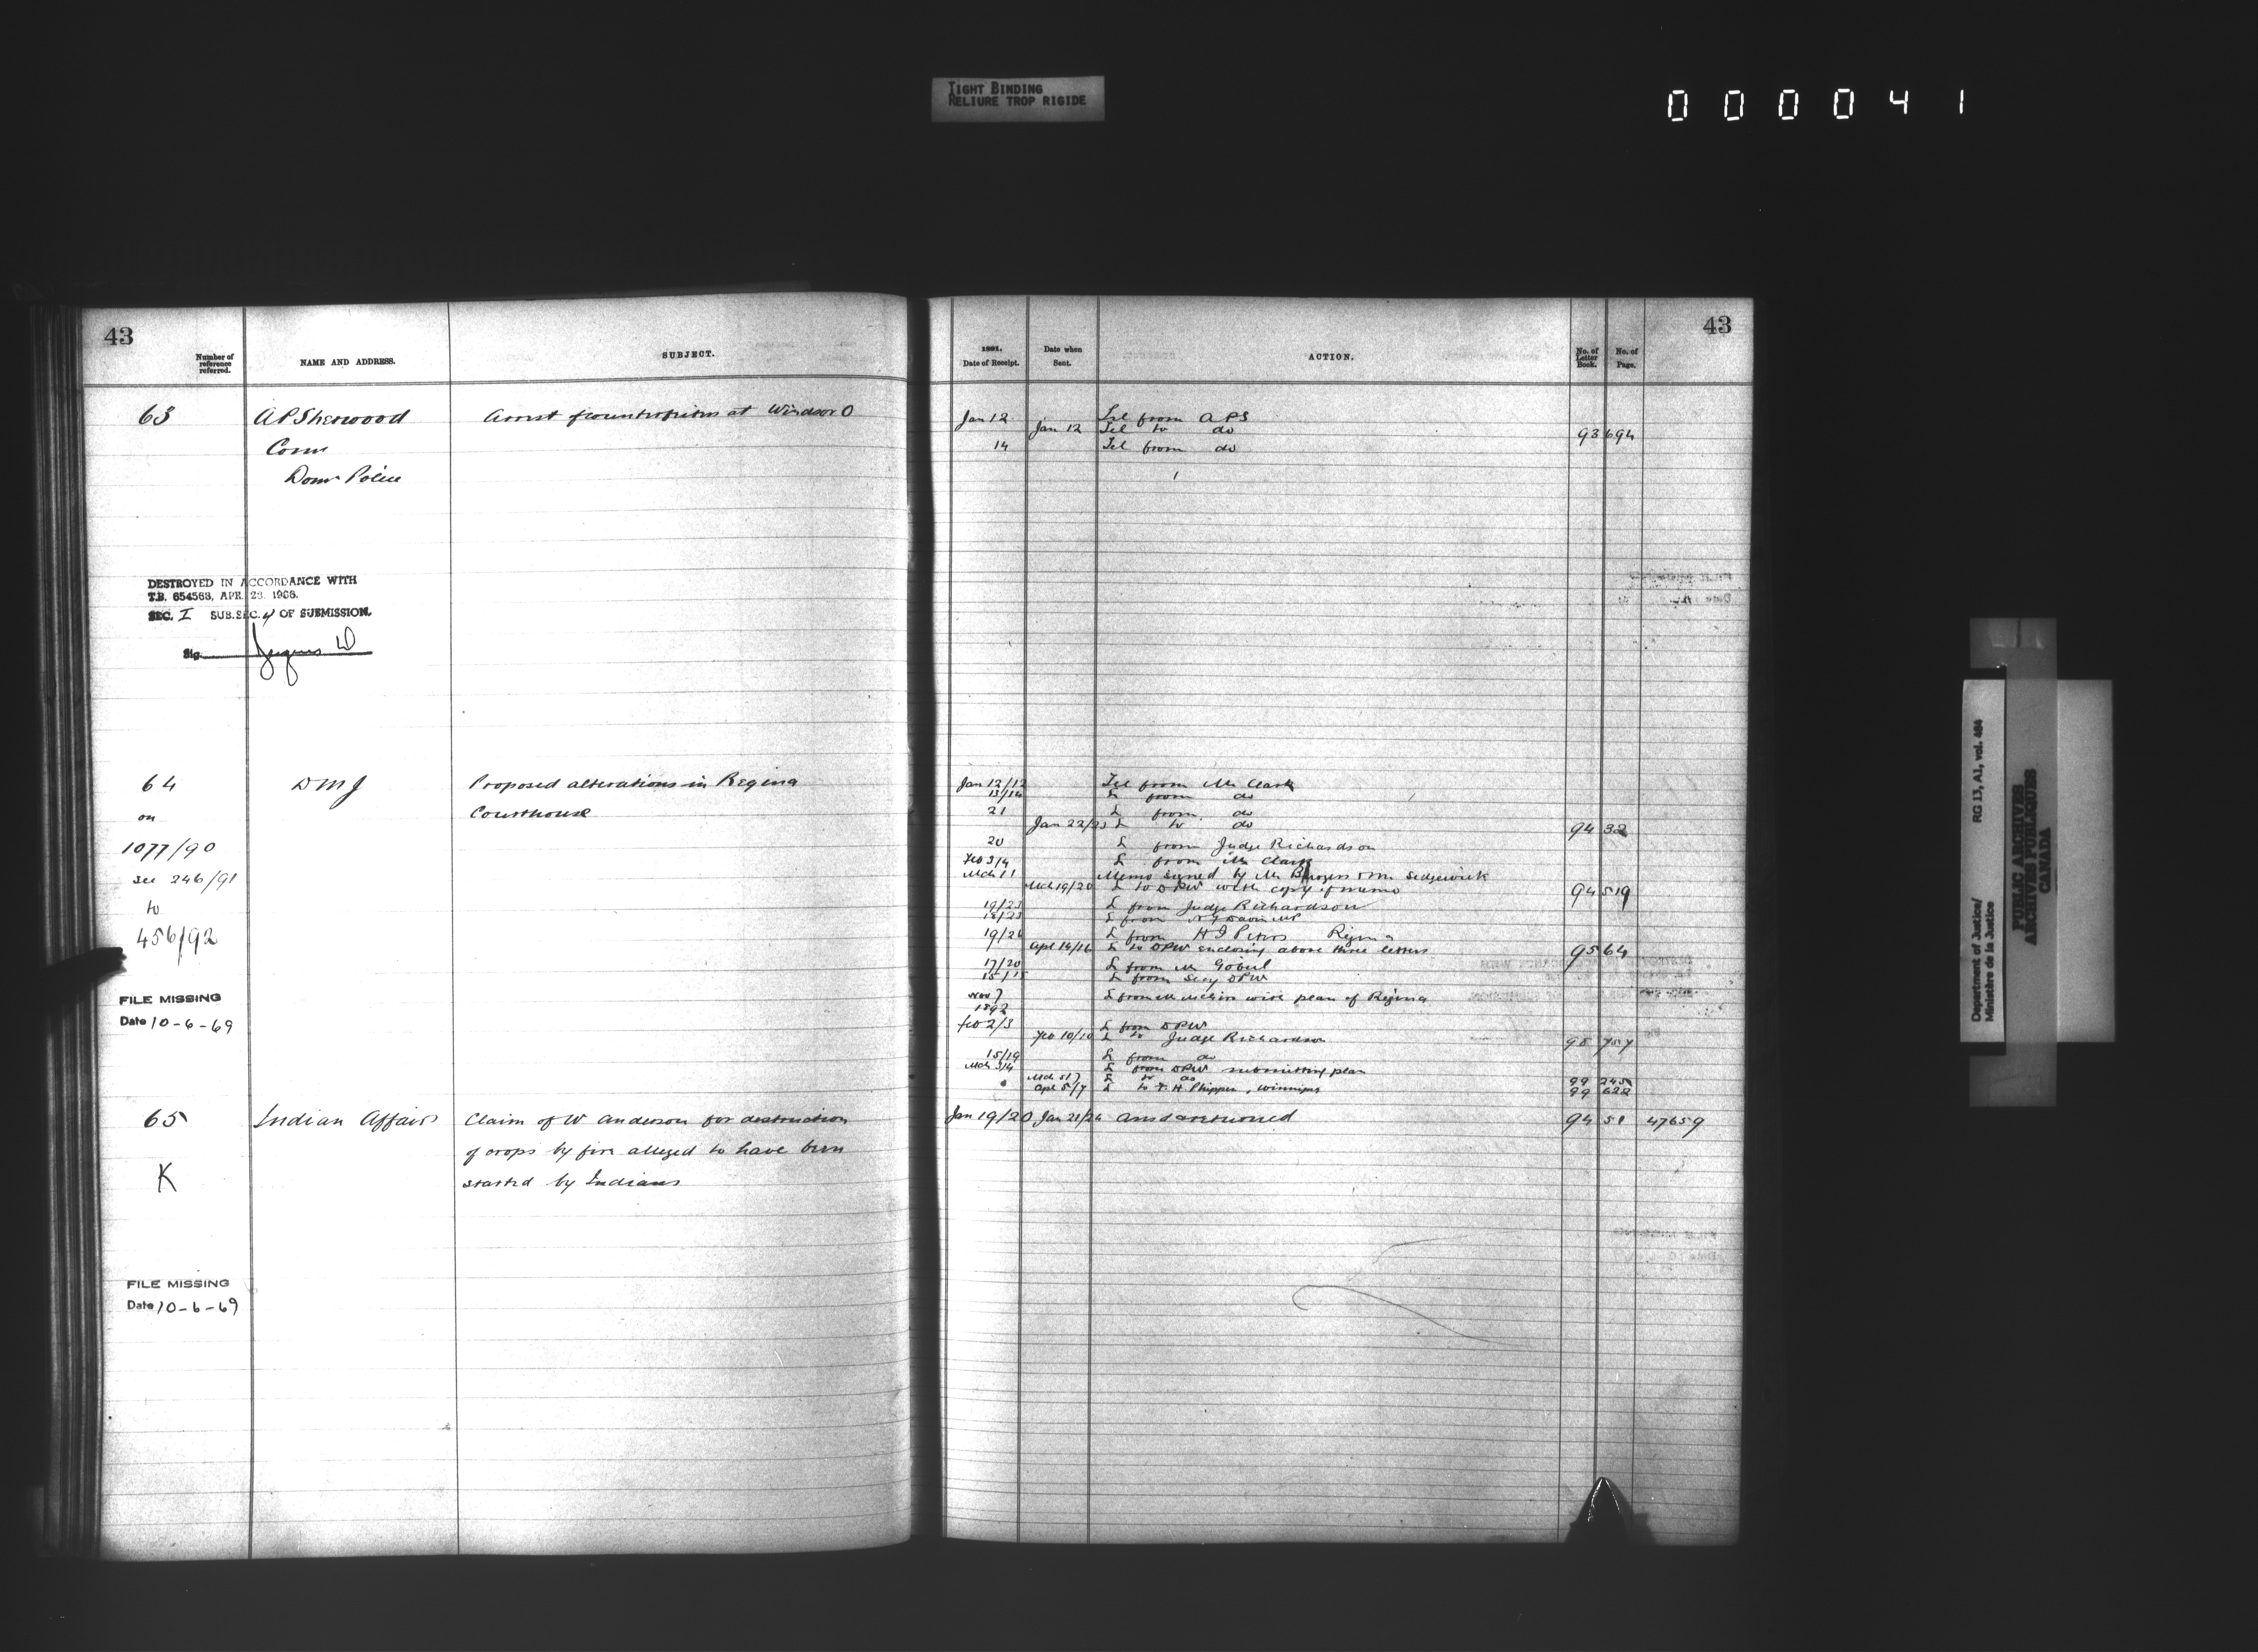 TIGHT BINDING
RELIURE TROP RIGIDE
000041
43
Number of reference referred.
NAME AND ADDRESS.
SUBJECT.
63
A P Sherwood
Arrest of counterfeiters at Windsor O
Comr
Domn Police
DESTROYED IN ACCORDANCE WITH
T.B. 654563, APR. 23. 1966.
SEC. I SUB.SEC. 4 OF SUBMISSION.
Sig.
64
D M J
Proposed alterations in Regina
on
Courthouse
1077/90
see 246/91
to
456/92
FILE MISSING
Date 10-6-69
65
Indian Affairs
Claim of W Anderson for destruction
of crops by fire alleged to have been
K
started by Indians
FILE MISSING
Date 10-6-69
43
1891.
Date of Receipt.
Date when Sent.
ACTION.
No. of Letter Book.
No. of Page.
Jan 12 Tel from A P S
Jan 12 Tel to do 93 694
14 Tel from do
Jan 12/12 Tel from Mr Clark
13/14 L from do
21 L from do
Jan 22/23 L to do 94 32
20 L from Judge Richardson
Feb 3/4 L from Mr Clark
Mch 11 Memo signed by Mr Burgess & Mr Sedgewick
Mch 19/20 L to DPW with copy of memo 94 519
19/23 L from Judge Richardson
18/23 L from N F Davin MP
19/24 L from Regina
Apl 14/16 L to DPW enclosing above three letters 95 64
17/20 L from Mr Gobeil
15/15 L from Secy DPW
Nov 7 L from with plan of Regina
1892
Feb 2/3 L from DPW
Feb 10/10 L to Judge Richardson 98 757
15/19 L from do
Mch 3/4 L from DPW submitting plan
L to do 99 245
Apl 5/7 L to Phippen, Winnipeg 99 622
Jan 19/20 Jan 21/24 94 51 47659
Department of Justice/
Ministère de la Justice
RG 13, A1, vol. 484
PUBLIC ARCHIVES
ARCHIVES PUBLIQUES
CANADA